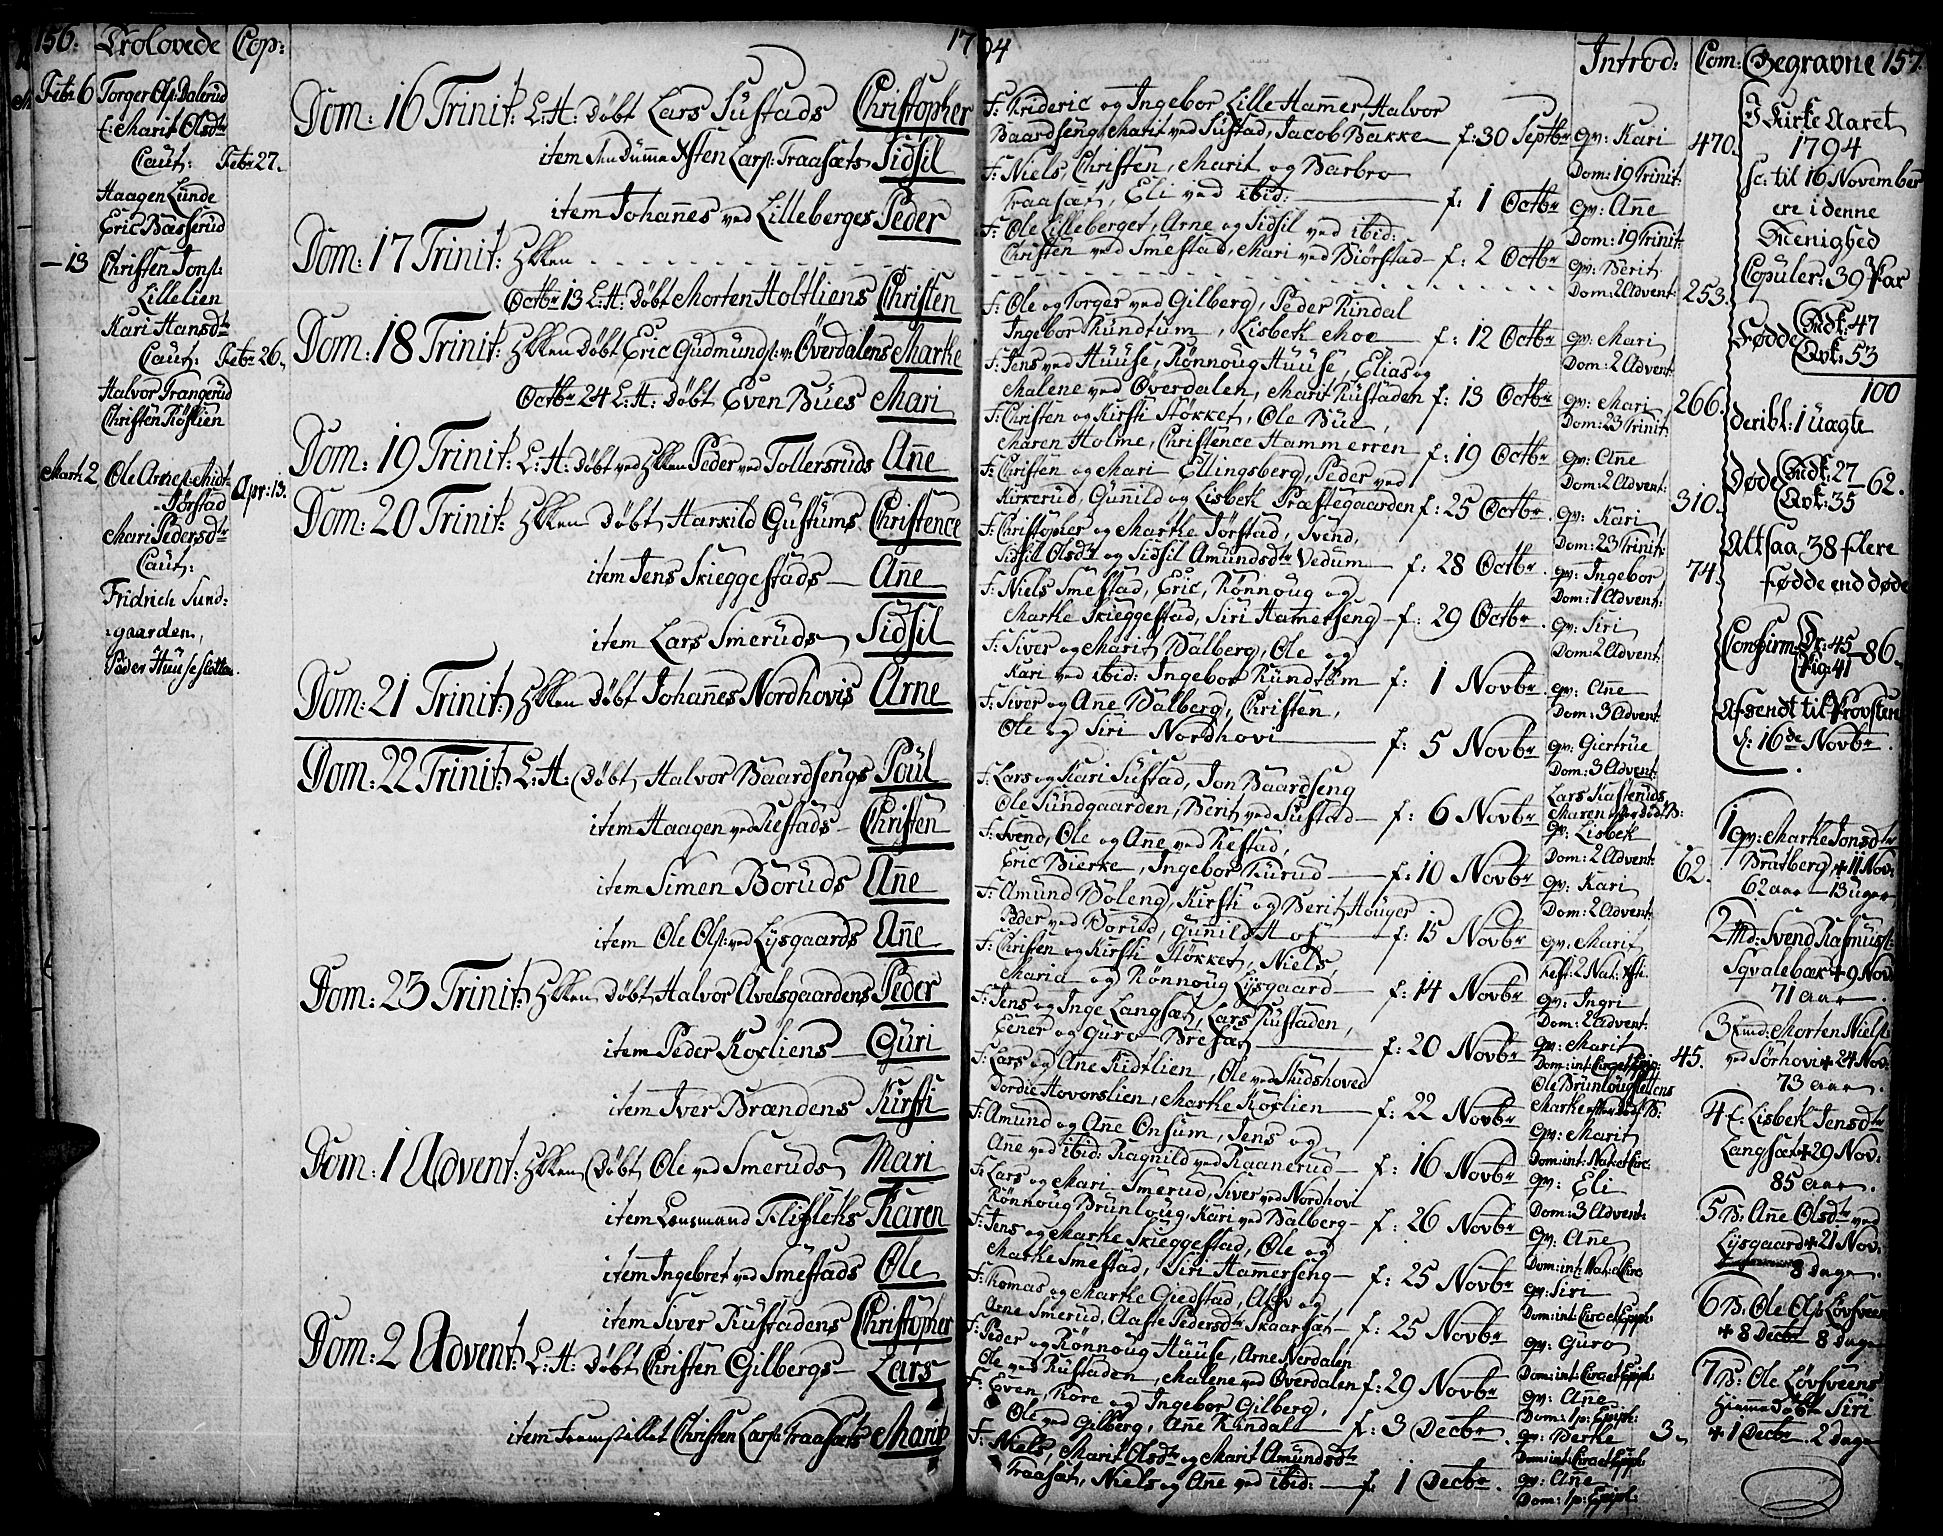 156. Trolovede Cop: 1794 Introd: Com: Begravne 157.
Febr 6 Torger Ols: Dalerud
E: Marit Olsdtr
Caut: Febr 27.
Haagen Lunde
Eric Bæsserud
— 13 Christen Jons:
Lillelien
Kari Hansdtr
Caut: Febr 26.
Halvor Trangerud
Christen Röslien
Mart: 2 Ole Arnes: Midt-
Jörstad Apr: 13.
Mari Pedersdtr
Caut:
Fridrich Sund:
gaarden,
Peder Huusesletten.
Dom: 16 Trinit: L:H: Döbt Lars Sustads Christopher
item Lars: Traasæts Sidsil
item Johanes ved Lilleberges Peder
Dom: 17 Trinit:
Octbr 13 L:H: Döbt Morten Holtliens Christen
Dom: 18 Trinit: Döbt Eric Gudmunds: v: Överdalens Marthe
Octbr 24 L:H: Döbt Even Bües Mari
Dom: 19 Trinit: L:H: Döbt Peder ved Tollersruds Ane
Dom: 20 Trinit: Döbt Harkild Gustums Christence
item Jens Skieggestads Ane
item Lars Smeruds Sidsil
Dom: 21 Trinit: Döbt Johanes Nordhovis Arne
Dom: 22 Trinit: L:H: Döbt Halvor Baardsengs Poul
item Haagen ved Restads Christen
item Simen Boruds Ane
item Ole Ols: ved Lysgaards Ane
Dom: 23 Trinit: Döbt Halvor Avelsgaardens Peder
item Peder Koxliens Guri
item Iver Brændens Kirsti
Dom: 1 Advent: Döbt Ole ved Smeruds Mari
item Lensmand Flifleths Karen
item Ingebret ved Smestads Ole
item Siver Rustadens Christopher
Dom: 2 Advent: L:H: Döbt Christen Gilbergs Lars
item Fremstillet Christen Lars: Traasæts Marit
F: Frideric og Ingebor Lille Hamer, Halvor
Baardseng, Marit ved Sustad, Jacob Bakke f: 30 Septbr
F: Niels, Christen, Marit og Barbro
Traasæt, Eli ved ibid: f: 1 Octbr
F: Ole Lilleberget, Arne og Sidsil ved ibid:
Christen ved Smestad, Mari ved Biörstad f: 2 Octbr
F: Ole og Torger ved Gilberg, Peder Kindal
Ingebor Rundtum, Lisbeth Moe f: 12 Octbr
F: Jens ved Huuse, Rönnoug Huuse, Elias og
Malene ved Overdalen, Marit Rustaden f: 13 Octbr
F: Christen og Kirsti Stokket, Ole Bue,
Maren Holme, Christence Hammerren f: 19 Octbr
F: Christen og Mari Ellingsberg, Peder ved
Kirkerud, Gunild og Lisbeth Præstegaarden f: 25 Octbr
F: Christopher og Marthe Jörstad, Svend,
Sidsil Olsdtr og Sidsil Amundsdtr Vedum f: 28 Octbr
F: Niels Smestad, Eric, Rönnoug og
Marthe Skieggestad, Siri Hamerseng f: 29 Octbr
F: Siver og Marit Dalberg, Ole og
Kari ved ibid: Ingebor Rundtom f: 1 Novbr
F: Siver og Ane Balberg, Christen,
Ole og Siri Nordhovi f: 5 Novbr
F: Lars og Kari Sustad, Jon Baardseng
Ole Sundgaarden, Berit ved Sustad f: 6 Novbr
F: Svend, Ole og Ane ved Restad,
Eric Bierke, Ingebor Rurud f: 10 Novbr
F: Amund Boleng, Kirsti og Berit Houger
Peder ved Borud, Gunild Hof f: 15 Novbr
F: Christen og Kirsti Stokket, Niels,
Maria og Rönnoug Lysgaard f: 14 Novbr
F: Jens og Inge Langsæt, Lars Rustaden,
Ener og Guro Bresæt f: 20 Novbr
F: Lars og Ane Kidtlien, Ole ved Skidshoved
Dordie Hovorslien, Marthe Koxlien f: 22 Novbr
F: Amund og Ane Onsum, Jens og
Ane ved ibid: Ragnild ved Raanerud f: 16 Novbr
F: Lars og Mari Smerud, Siver ved Nordhovi
Rönnoug Brunloug, Kari ved Balberg f: 26 Novbr
F: Jens og Marthe Skieggestad, Ole og
Marthe Smestad, Siri Hamerseng f: 25 Novbr
F: Thomas og Marthe Giedstad, og
Arne Smerud, Olaffe Pedersdtr Skaarsæt f: 25 Novbr
F: Peder og Rönnoug Huuse, Arne Nerdalen,
Ole ved Rustaden, Malene ved Overdalen f: 29 Novbr
F: Even, Tore og Ingebor Gilberg,
Ole ved Gilberg, Ane Kindal f: 3 Decbr
F: Niels, Marit Olsdtr og Marit Amundsdtr
Traasæt, Niels og Ane ved ibid: f: 1 Decbr
qv: Kari 470.
Dom: 19 Trinit:
qv: Ane
Dom: 19 Trinit:
qv: Berit
Dom: 2 Advent: 253.
qv: Mari
Dom: 2 Advent:
qv: Mari 266.
Dom: 23 Trinit:
qv: Ane
Dom: 2 Advent: 310.
qv: Kari
Dom: 23 Trinit:
qv: Ingebor 74.
Dom: 1 Advent:
qv: Siri
Dom: 2 Advent:
qv: Ane
Dom: 3 Advent:
qv: Giertrue
Dom: 3 Advent:
Lars Kasteruds
Maren efter död B:
qv: Lisbeth
Dom: 2 Advent: 62.
qv: Kari
Dom: 2 Advent:
qv: Marit
fest: 2 Nat: Xsti.
qv: Ingri
Dom: 2 Advent:
qv: Marit
45.
Marthe efter död B:
qv: Marit
Dom: int: Nat: et Circ:
qv: Eli
Dom: 3 Advent:
qv: Ane
Dom: int: Nat: et Circ:
qv: Siri
Dom: int: Circ: et Epiph:
qv: Guro
Dom: int: Circ: et Epiph:
qv: Ane
Dom: 1 p: Epiph:
qv: Berthe 3.
Dom: int: Circ: et Epiph:
qv: Ane
Dom: 1 p: Epiph:
I Kirke Aaret
1794
sc: til 16 November
ere i denne
Menighed
Copuler: 39 Par
Födde Mdk: 47
Qvk: 53
100
deribl: 1 uægte
Döde Mdk: 27
Qvk: 35 62.
Altsaa 38 flere
födde end döde
Confirm: Dr: 45
Pig: 41 86.
Afsendt til Provsten
d: 16de Novbr.
1 qv: Marthe Jonsdtr
Bratberg + 11 Nov:
62 aar 13 uger
2 Md: Svend Rasmus:
Sqvalebæk + 9 Nov:
71 aar.
3 Md: Morten Niels:
ved Sörhovi + 24 Nov:
73 aar.
4 E: Lisbeth Jensdtr
Langsæt + 29 Nov:
85 aar.
5 B: Ane Olsdtr ved
Lysgaard + 21 Nov:
8 dage.
6 B: Ole Ols: Lövsveen
+ 8 Decbr 8 dage
7 B: Ole Lövsveens
Hiemedöbte Siri
+ 1 Decbr 2 dage